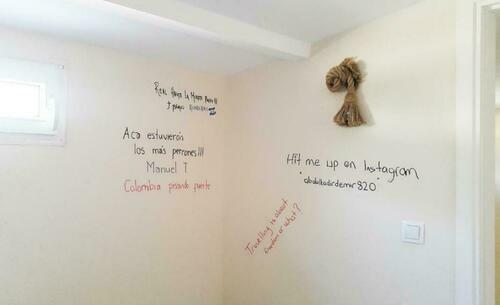 Real Hasta la Muerte
Aca estuvieron
los más perrones!!!
Manuel T
Colombia pisando fuerte
Hit me up on Instagram
abdulkadirdemir820
Travelling is about
freedom or what?